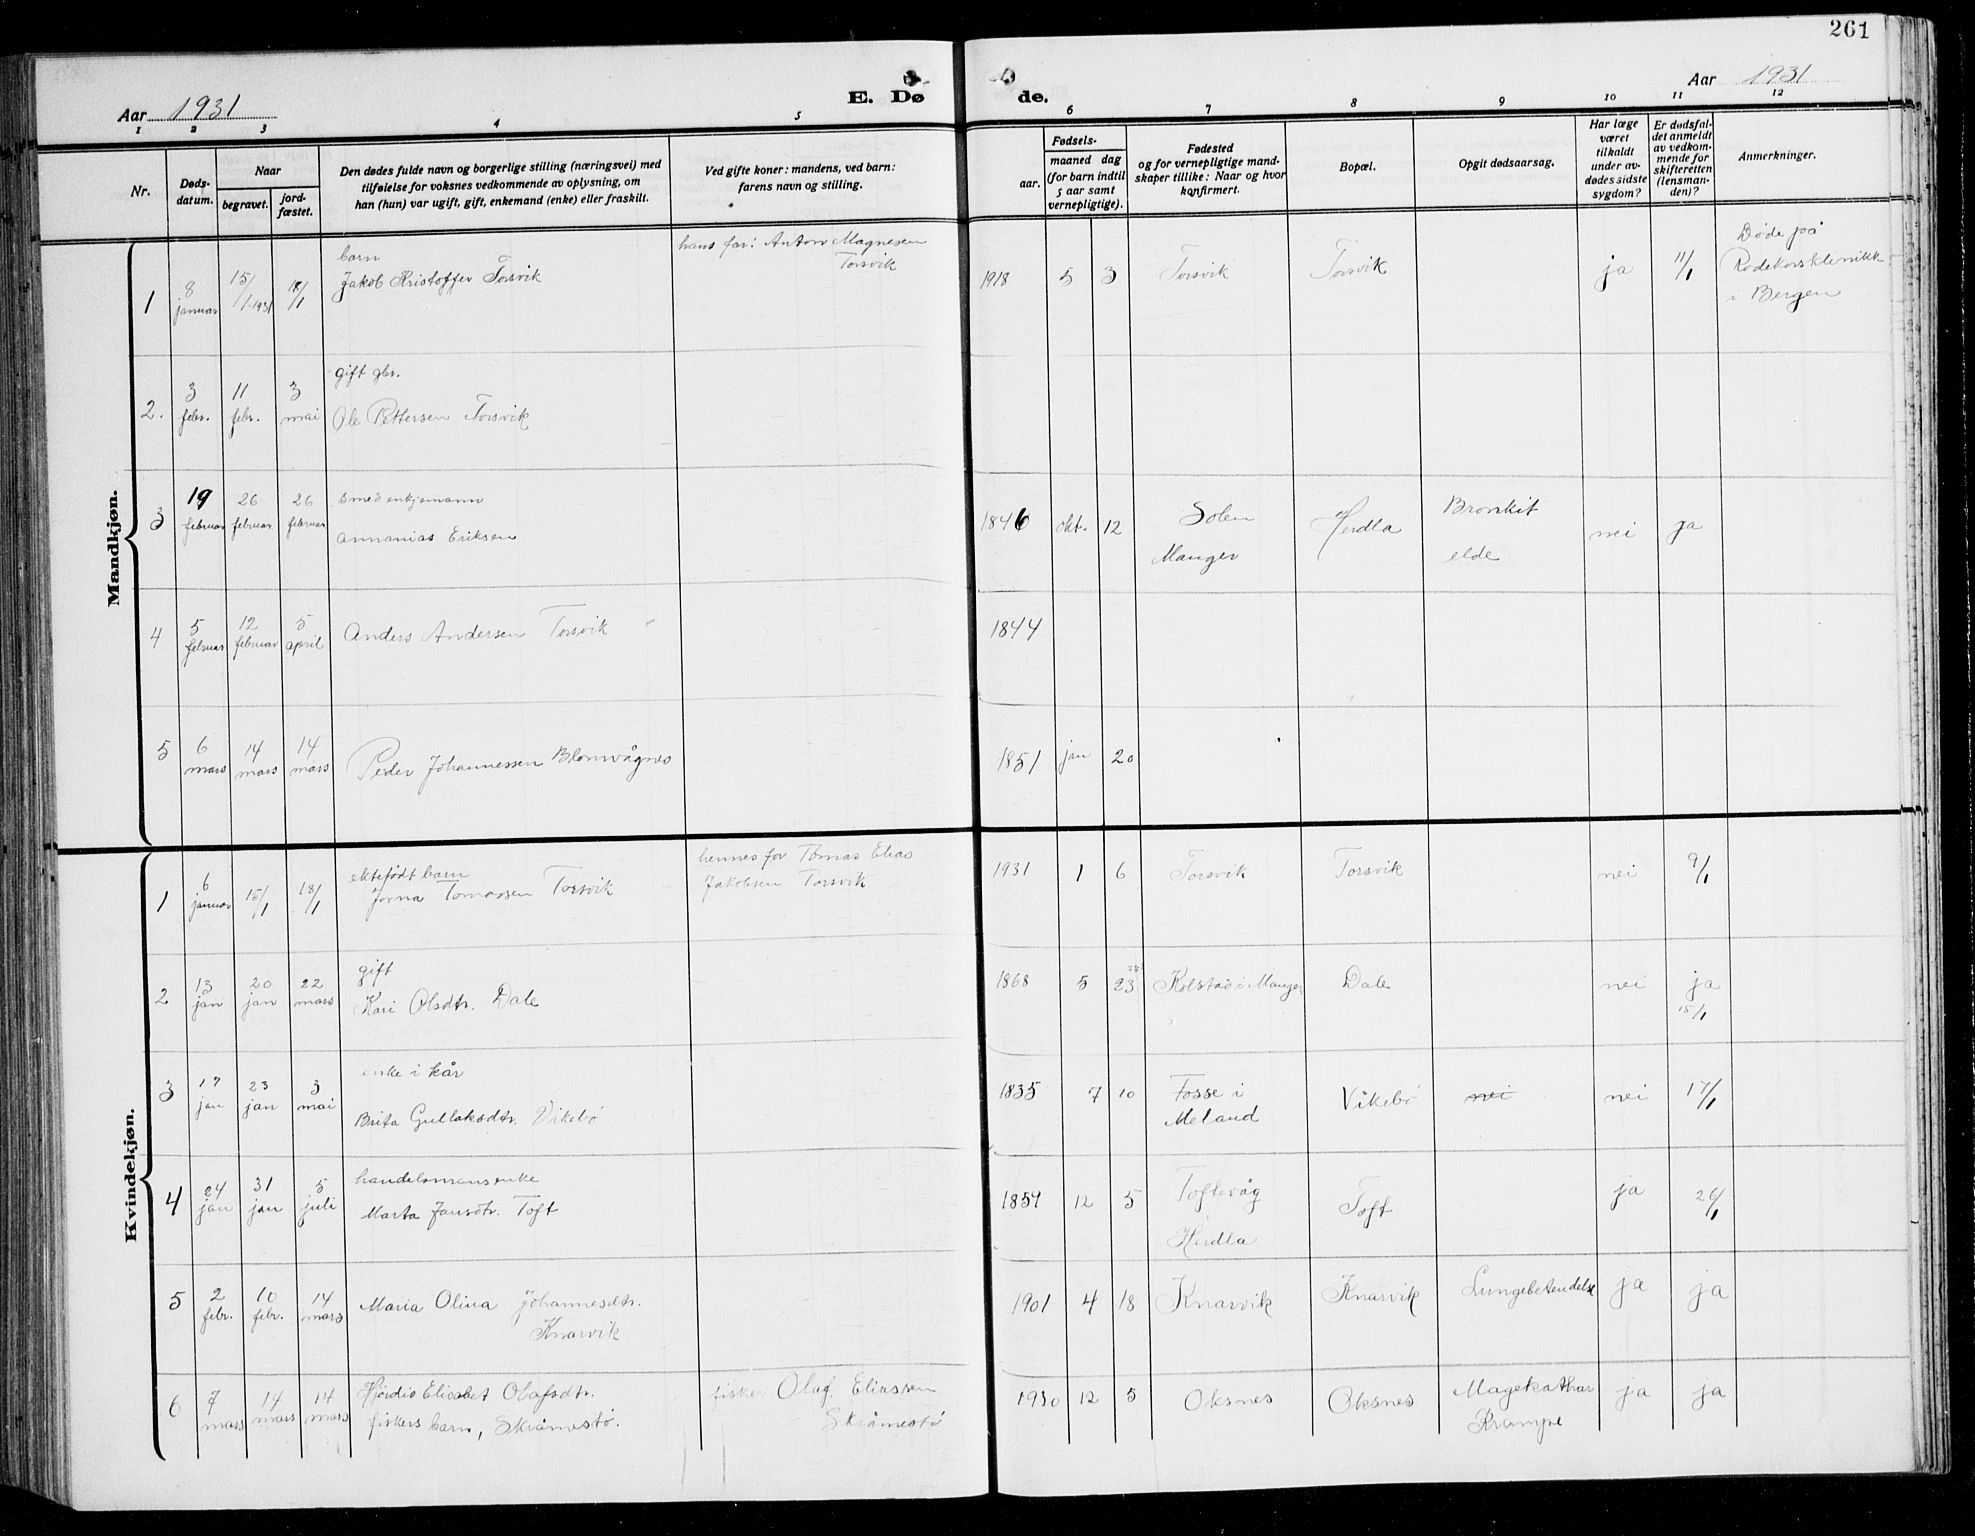 261
Aar 1931
E. Dø de.
Aar 1931
1 2 3 4 5 6 7 8 9 10 11 12
Nr.
Døds-
datum.
Naar
begravet.
jord-
fæstet.
Den dødes fulde navn og borgerlige stilling (næringsvei) med
tilføielse for voksnes vedkommende av oplysning, om
han (hun) var ugift, gift, enkemand (enke) eller fraskilt.
Ved gifte koner: mandens, ved barn:
farens navn og stilling.
Fødsels-
aar.
maaned dag
(for barn indtil
5 aar samt
vernepligtige).
Fødested
og for vernepligtige mand-
skaper tillike: Naar og hvor
konfirmert.
Bopæl.
Opgit dødsaarsag.
Har læge
været
tilkaldt
under av-
dødes sidste
sygdom?
Er dødsfal-
det anmeldt
av vedkom-
mende for
skifteretten
(lensman-
den)?
Anmerkninger.
Mandkjøn.
1
8
januar
15/
/1-1931
18/1
barn
Jakob Kristoffer Torsvik
hans far: Anton Magnesen
Torsvik
1918 5 3 Torsvik Torsvik ja 11/1
Døde på
Rødekorsklinikk
i Bergen
2.
3
febr.
11
febr.
3
mai
gift gbr.
Ole Pettersen Torsvik
3
19
februar
26
februar
26
februar
smed enkjemann
Annanias Eriksen
1846 okt. 12
Solem
Manger
Herdla
Bronkit
elde
nei ja
4
5
februar
12
februar
5
april
Anders Andersen Torsvik
1844
5
6
mars
14
mars
14
mars
Peder Johannessen Blomvågnes
1851 jan 20
Kvindekjøn.
1
6
januar
15/1
18/1
ektefødt barn
Jorna Tomassen Torsvik
hennes far Tomas Elias
Jakobsen Torsvik
1931 1 6 Torsvik Torsvik nei 9/1
2
13
jan
20
jan
22
mars
gift
Kari Olsdtr. Dale
1868 5 23 Kolstad i Manger Dale nei ja
15/1
3
17
jan
23
jan
3
mai
enke i kår
Brita Gullaksdtr. Vikebø
1835 7 10
Fosse i
Meland
Vikebø nei nei 17/1
4
24
jan
31
jan
5
juli
handelsmansenke
Marta Jansdtr. Toft
1859 12 5
Toftevåg
Herdla
Toft ja 26/1
5
2
febr.
10
febr.
14
mars
Maria Olina Johannesdtr.
Knarvik
1901 4 18 Knarvik Knarvik Lungebetendelse ja ja
6
7
mars
14
mars
14
mars
Hjørdis Elisabet Olafsdtr.
fiskers barn, Skråmestø.
fisker Olaf Eliassen
Skråmestø
1930 12 5 Oksnes Oksnes
Magekathar
Krampe
ja ja